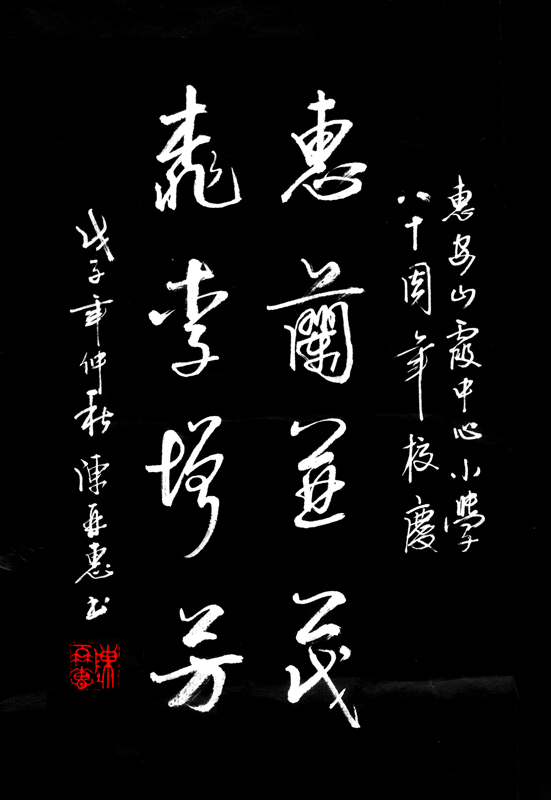 惠安山霞中心小學
八十周年校慶
惠蘭並茂
桃李增芳
戊子年仲秋 陳再惠书
陳再惠